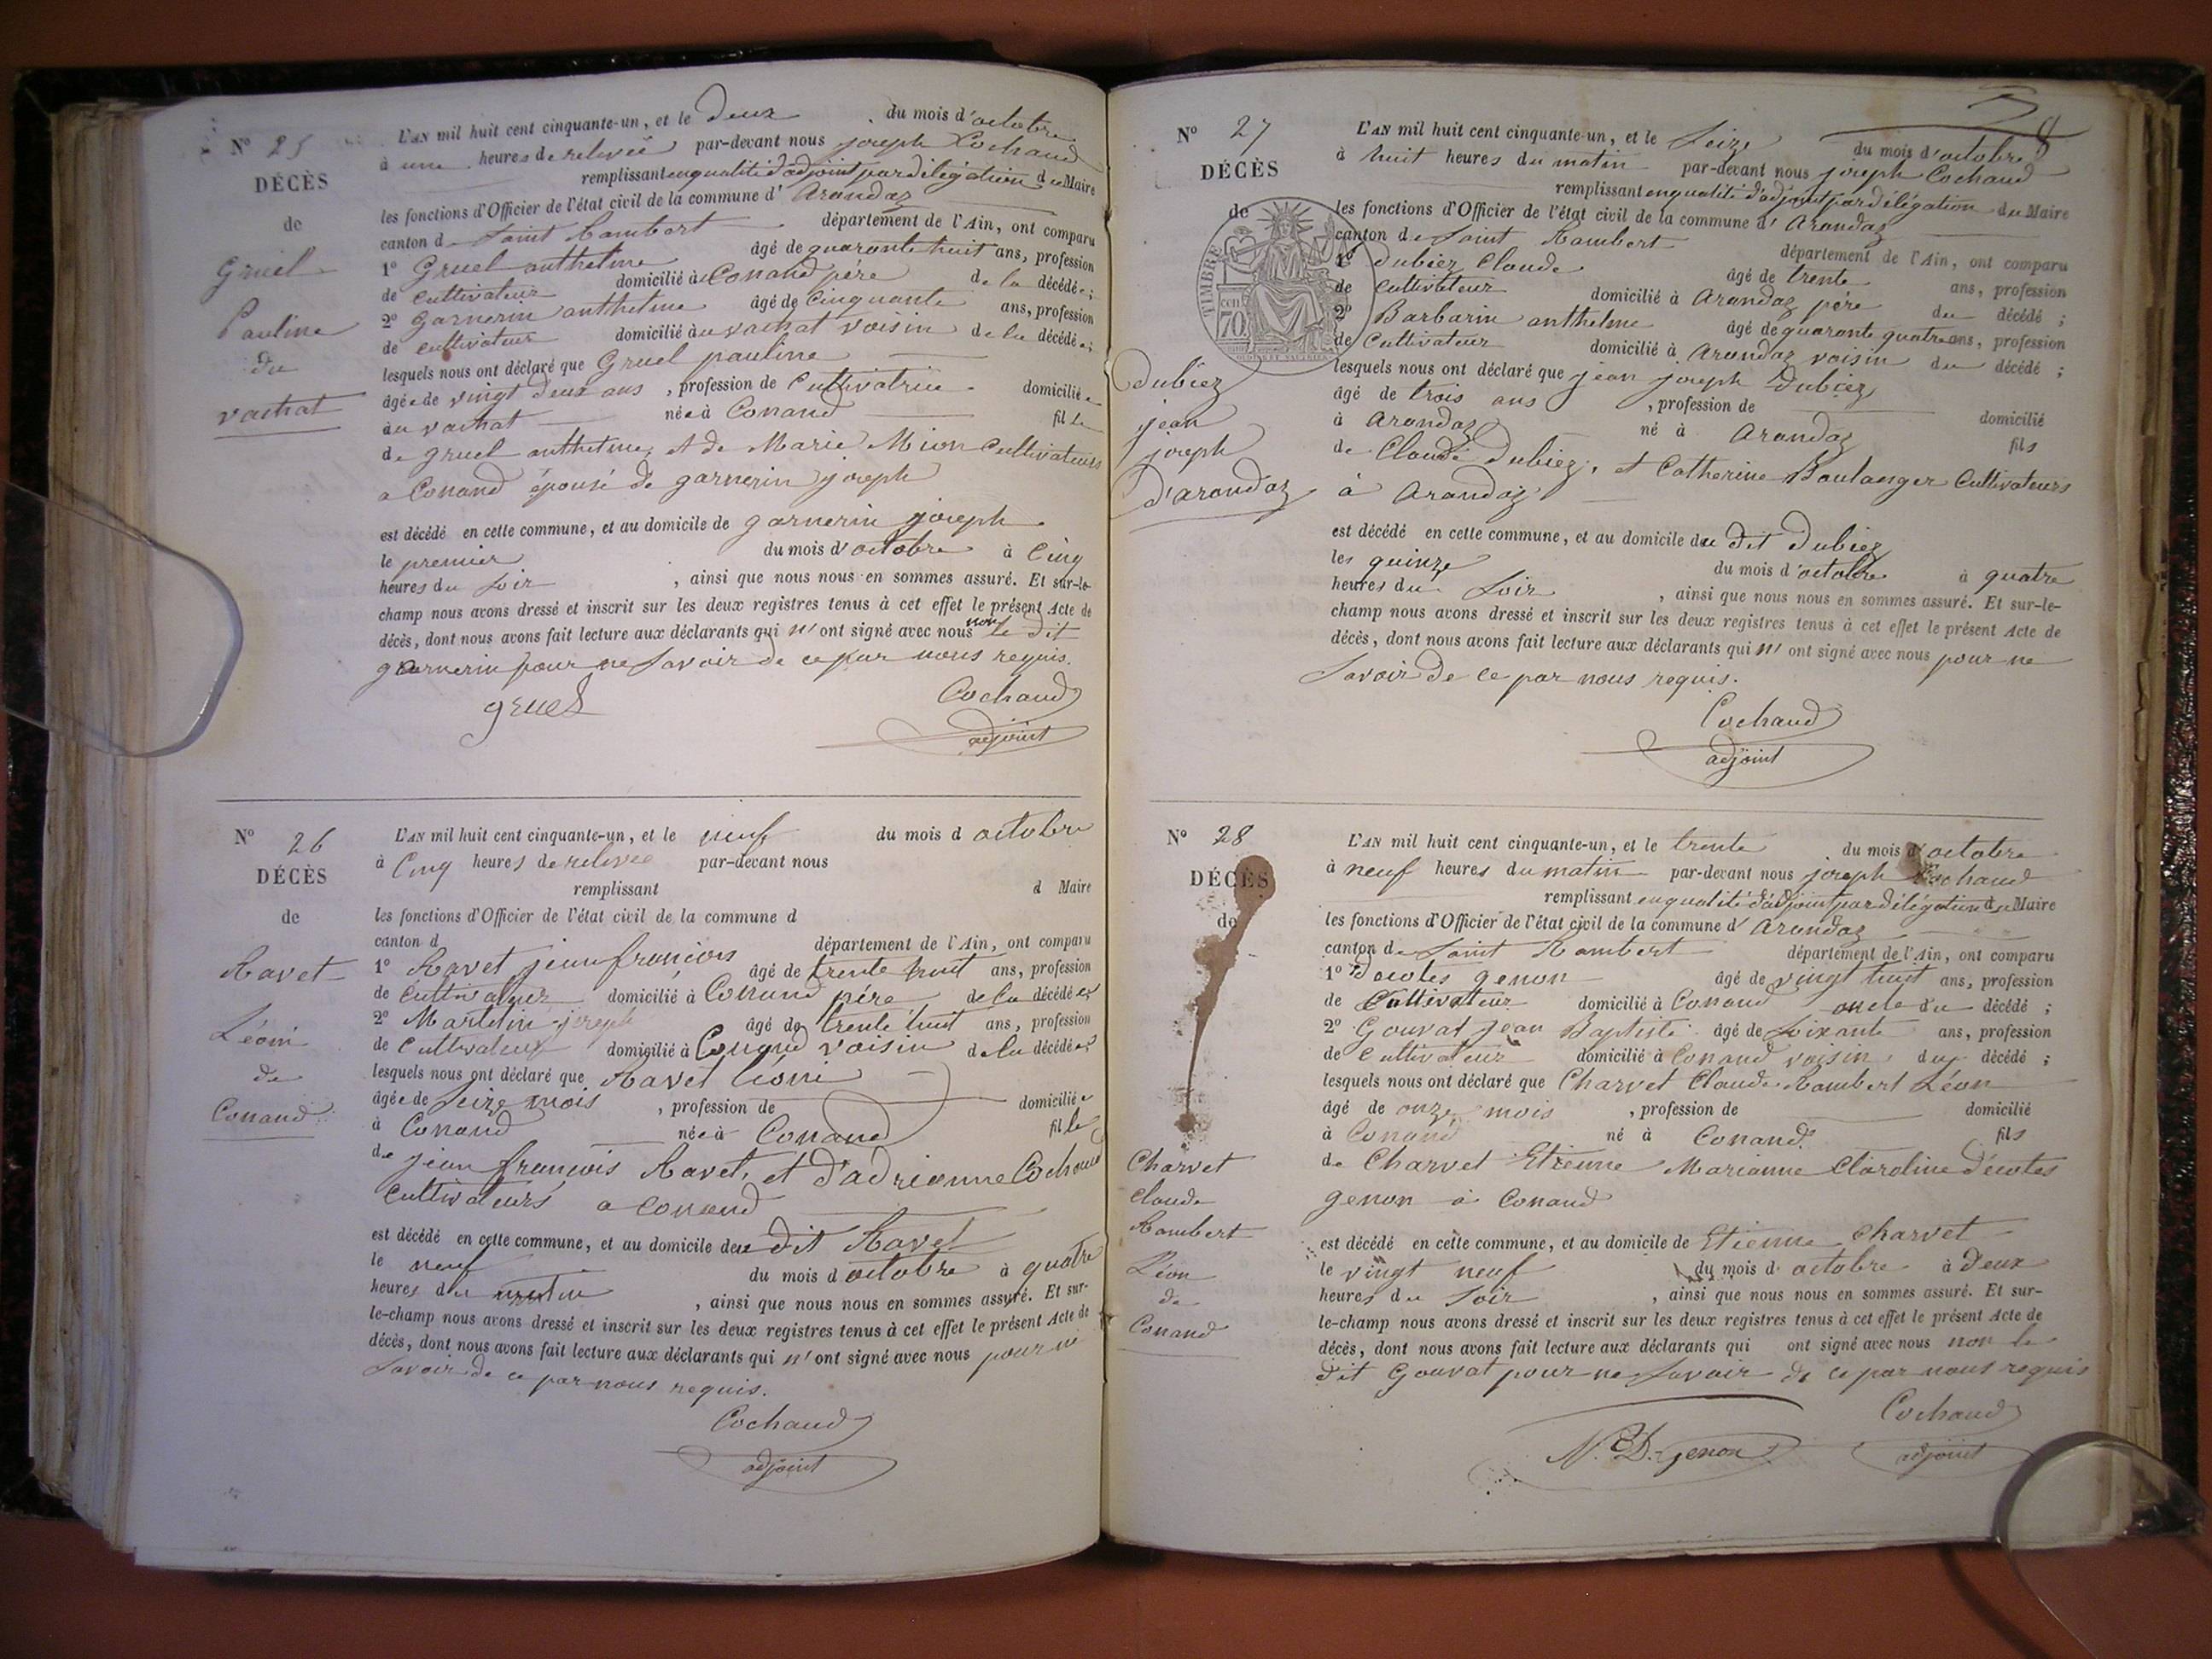 N° 25
DÉCÈS
de
Gruel
Pauline
du
vachat
L'AN mil huit cent cinquante-un, et le deux du mois d'octobre
à une heures de relevée par-devant nous joseph Cochand
remplissant en qualité d'adjoint par délégation du Maire
les fonctions d'Officier de l'état civil de la commune d'Arandaz
canton de Saint Rambert département de l'Ain, ont comparu
1° Gruel anthelme âgé de quarante huit ans, profession
de cultivateur domicilié à Conand père de la décédée;
2° Garnerin anthelme âgé de Cinquante ans, profession
de cultivateur domicilié au vachat voisin de la décédée;
lesquels nous ont déclaré que Gruel pauline
âgée de vingt deux ans, profession de Cultivatrice domiciliée
au vachat née à Conand fille
de gruel anthelme, et de Marie Mion Cultivateurs
a Conand épouse de garnerin joseph
est décédé en cette commune, et au domicile de garnerin joseph
le premier du mois d'octobre à Cinq
heures du soir, ainsi que nous nous en sommes assuré. Et sur-le-
champ nous avons dressé et inscrit sur les deux registres tenus à cet effet le présent Acte de
décès, dont nous avons fait lecture aux déclarants qui n'ont signé avec nous non le dit
garnerin pour ne savoir de ce par nous requis.
gruel Cochand
adjoint
N° 26
DÉCÈS
de
Ravet
Léoni
de
Conand
L'AN mil huit cent cinquante-un, et le neuf du mois d octobre
à Cinq heures de relevée par-devant nous
remplissant d Maire
les fonctions d'Officier de l'état civil de la commune d
canton d département de l'Ain, ont comparu
1° Ravet jean françois âgé de trente huit ans, profession
de Cultivateur domicilié à Conand père de la décédée;
2° Martin joseph âgé de trente huit ans, profession
de Cultivateur domicilié à Conand voisin de la décédée;
lesquels nous ont déclaré que Ravet Léoni
âgée de seize mois, profession de domiciliée
à Conand née à Conand fille
de jean françois Ravet, et d'adrienne Cochand
Cultivateurs a Conand
est décédé en cette commune, et au domicile du dit Ravet
le neuf du mois d octobre à quatre
heures du matin, ainsi que nous nous en sommes assuré. Et sur-
le-champ nous avons dressé et inscrit sur les deux registres tenus à cet effet le présent Acte de
décès, dont nous avons fait lecture aux déclarants qui n'ont signé avec nous pour ne
savoir de ce par nous requis.
Cochand
adjoint
N° 27
DÉCÈS
de
TIMBRE
cent
70
dubiez
jean
joseph
d'arandaz
L'AN mil huit cent cinquante-un, et le seize du mois d'octobre
à huit heures du matin par-devant nous joseph Cochand
remplissant en qualité d'adjoint par délégation du Maire
les fonctions d'Officier de l'état civil de la commune d'Arandaz
canton de Saint Rambert département de l'Ain, ont comparu
1° dubiez Claude âgé de trente ans, profession
de cultivateur domicilié à Arandaz père du décédé;
2° Barbarin anthelme âgé de quarante quatre ans, profession
de Cultivateur domicilié à Arandaz voisin du décédé;
lesquels nous ont déclaré que jean joseph Dubiez
âgé de trois ans, profession de domicilié
à Arandaz né à Arandaz fils
de Claude dubiez, et Catherine Boulanger Cultivateurs
à Arandaz
est décédé en cette commune, et au domicile du dit dubiez
les quinze du mois d'octobre à quatre
heures du soir, ainsi que nous nous en sommes assuré. Et sur-le-
champ nous avons dressé et inscrit sur les deux registres tenus à cet effet le présent Acte de
décès, dont nous avons fait lecture aux déclarants qui n'ont signé avec nous pour ne
savoir de ce par nous requis.
Cochand
adjoint
N° 28
DÉCÈS
de
Charvet
claude
Rambert
Léon
de
Conand
L'AN mil huit cent cinquante-un, et le trente du mois d'octobre
à neuf heures du matin par-devant nous joseph Cochand
remplissant en qualité d'adjoint par délégation du Maire
les fonctions d'Officier de l'état civil de la commune d'Arandaz
canton de Saint Rambert département de l'Ain, ont comparu
1° Decotes genon âgé de vingt huit ans, profession
de Cultivateur domicilié à Conand oncle du décédé;
2° Gouvat jean Baptiste âgé de soixante ans, profession
de cultivateur domicilié à Conand voisin du décédé;
lesquels nous ont déclaré que Charvet Claude Rambert Léon
âgé de onze mois, profession de domicilié
à Conand né à Conand fils
de Charvet Etienne Marianne Claroline décotes
genon à Conand
est décédé en cette commune, et au domicile de Etienne Charvet
le vingt neuf du mois d octobre à deux
heures du soir, ainsi que nous nous en sommes assuré. Et sur-
le-champ nous avons dressé et inscrit sur les deux registres tenus à cet effet le présent Acte de
décès, dont nous avons fait lecture aux déclarants qui ont signé avec nous non le
dit Gouvat pour ne savoir de ce par nous requis
Cochand
genon adjoint